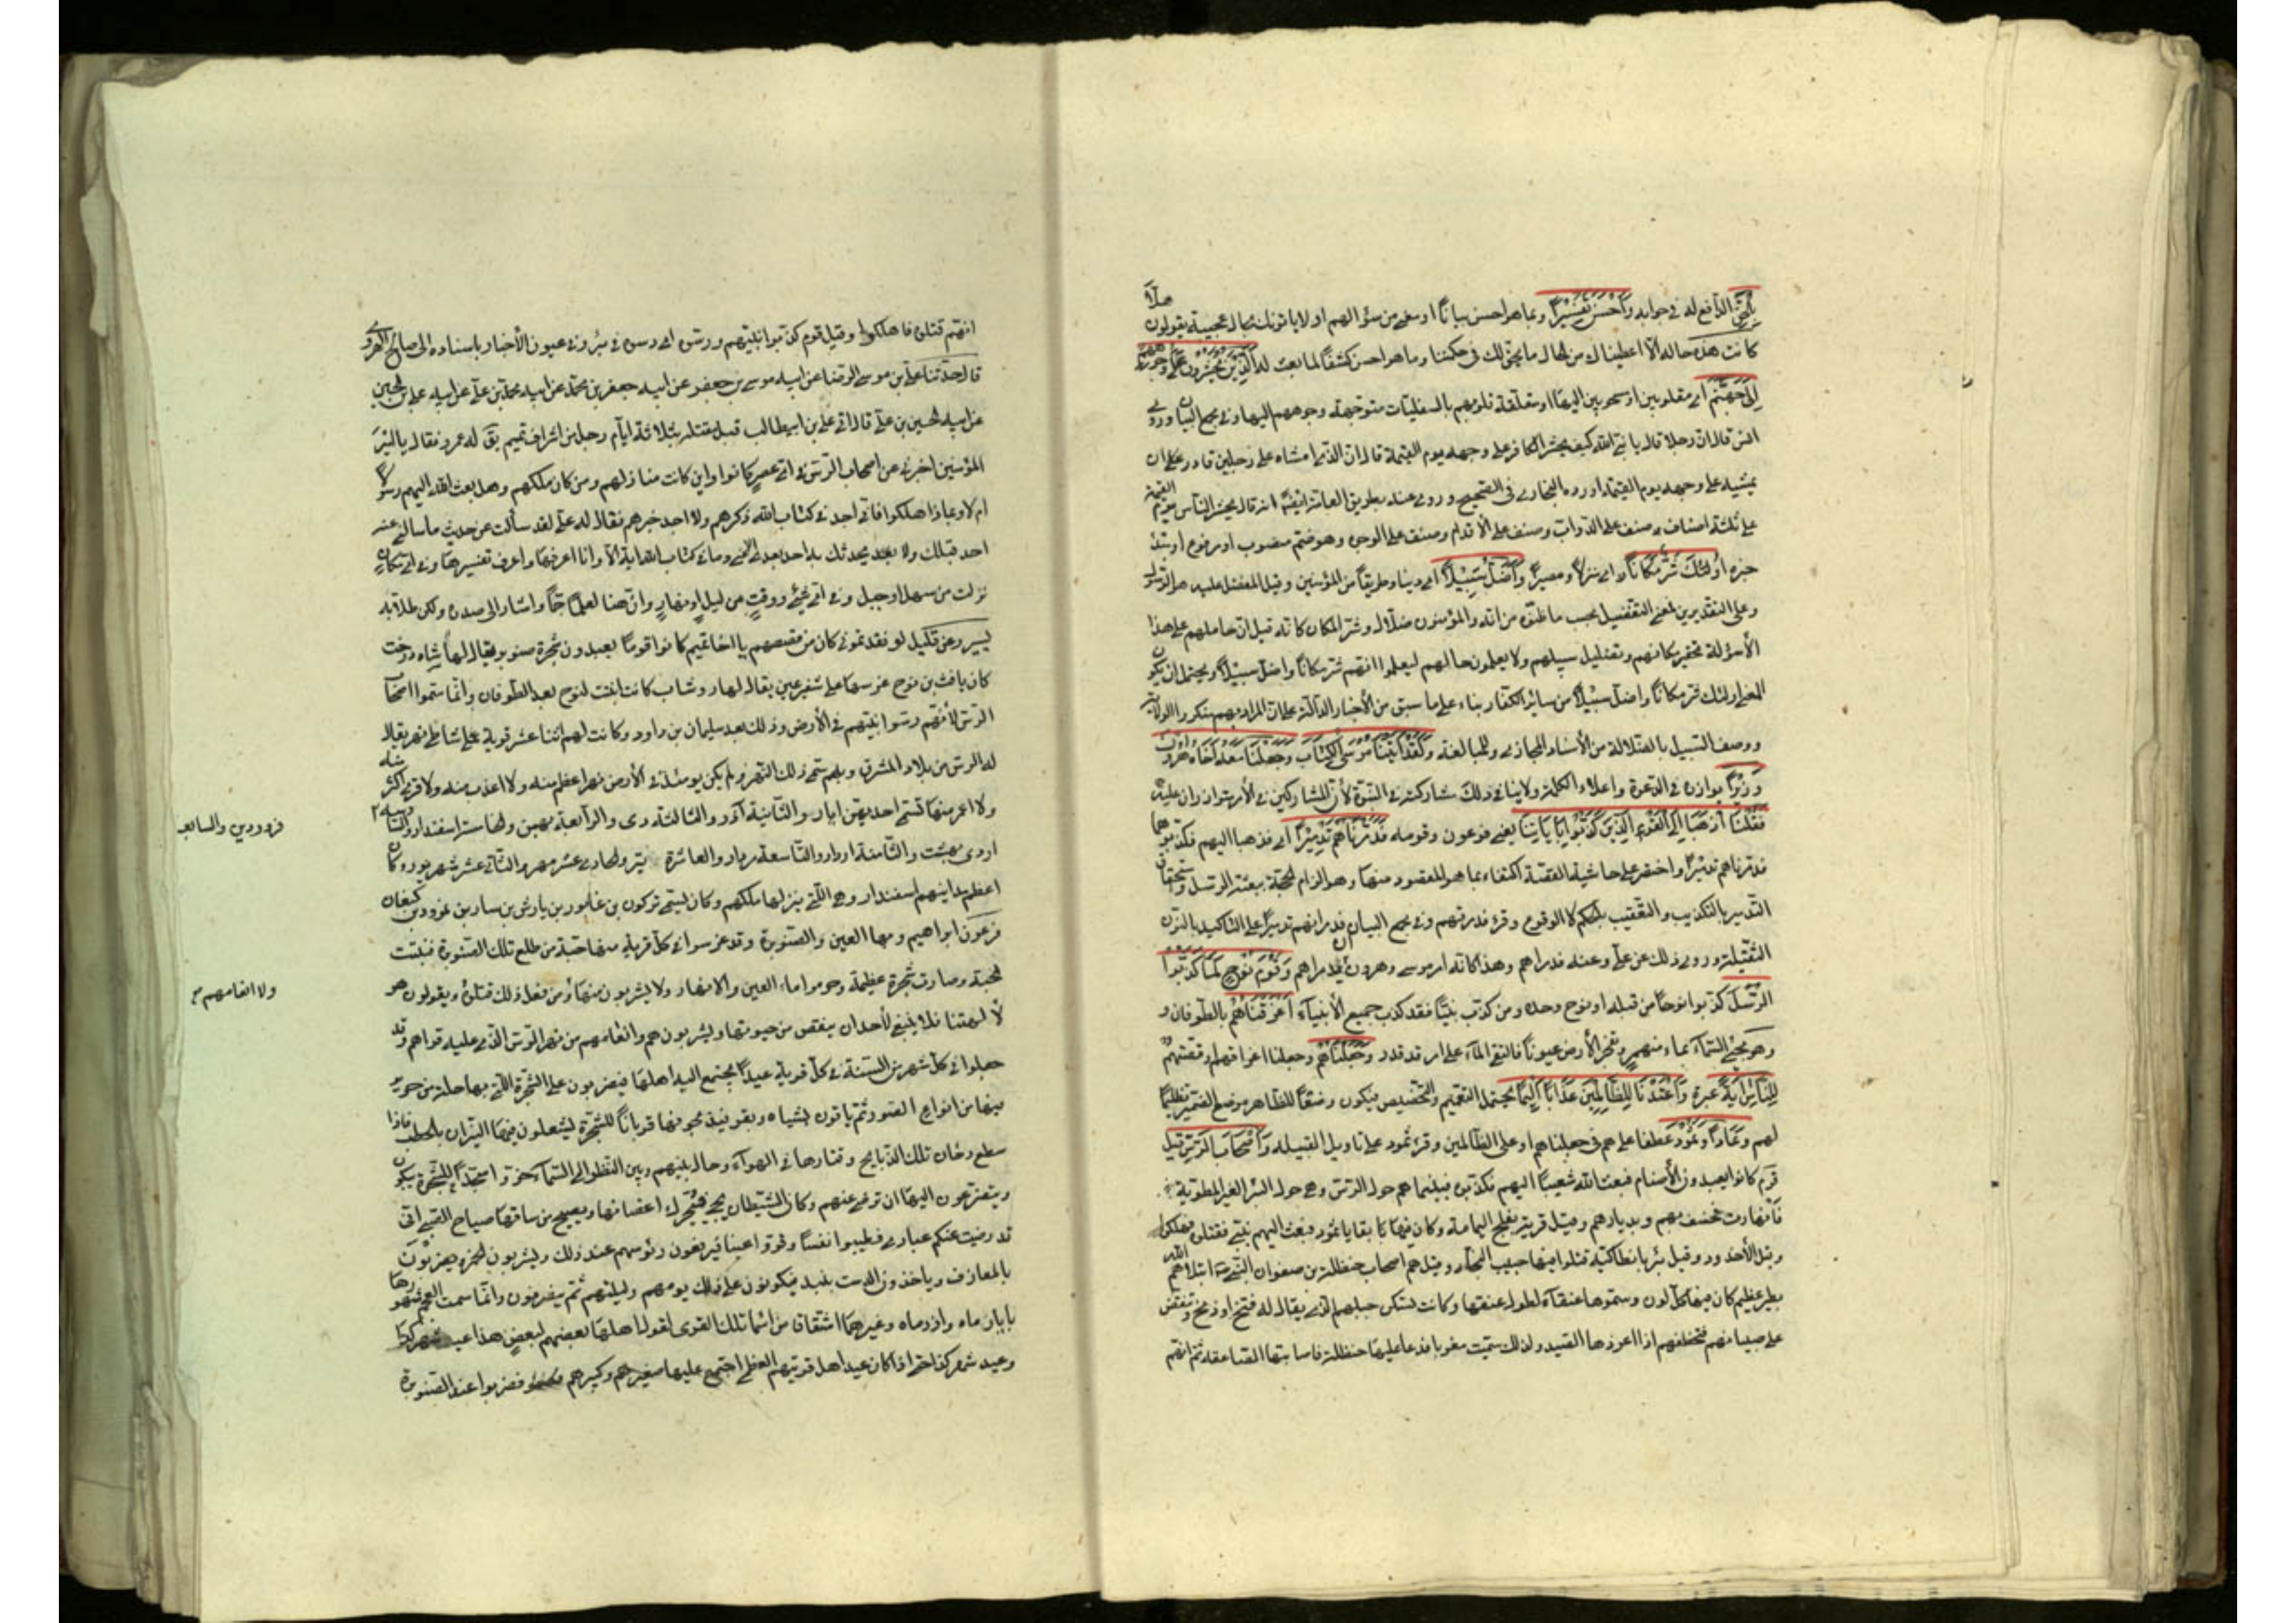 بالحق الدافع له في جوابه وأحسن تفسيرا وبما هو احسن بيانا او معنى من سؤالهم او لا ياتونك بحال عجيبة يقولون هلا
كانت هذه حاله الا اعطيناك من الحال ما يحق لك في حكمتنا وما هو احسن كشفا لما بعثت له الذين يحشرون على وجوههم
إلى جهنم اي مقلوبين او مسحوبين اليها او متعلقة قلوبهم بالسفليات متوجهة وجوههم اليها وفي مجمع البيان وروى
انس قال ان رجلا قال يا نبي الله كيف يحشر الكافر على وجهه يوم القيمة قال ان الذي امشاه على رجلين قادر على ان
يمشيه على وجهه يوم القيمة اورده البخاري في الصحيح وروي عنه بطريق العامة ايضا انه قال يحشر الناس يوم القيمة
على ثلثة اصناف صنف على الدواب وصنف على الاقدام وصنف على الوجوه وهو ذم منصوب او مرفوع او مبتدا
خبره أولئك شر مكانا اي منزلا ومصيرا وأضل سبيلا اي دينا وطريقا من المؤمنين وقيل المفضل عليه هو الرسول
وعلى التقديرين لمعنى التفضيل بحسب ما ظنوه من انه والمؤمنون ضلال وشر المكان كانه قيل ان حاملهم على هذا
الأسؤلة تحقير مكانهم وتضليل سبيلهم ولا يعلمون حالهم ليعلموا انهم شر مكانا واضل سبيلا ويحتمل ان يكون
المعنى اولئك شر مكانا واضل سبيلا من سائر الكفار بناء على ما سبق من الأخبار الدالة على ان المراد بهم منكروا الولاية
ووصف السبيل بالضلالة من الأسناد المجازي وللمبالغة ولقد آتينا موسى الكتاب وجعلنا معه أخاه هرون
وزيرا يوازره في الدعوة واعلاء الكلمة ولا ينافي ذلك شاركته في النبوة لأن المتشاركين في الأمر متوازران عليه
فقلنا اذهبا إلى القوم الذين كذبوا بآياتنا يعني فرعون وقومه فدمرناهم تدميرا اي فذهبا اليهم فكذبوهما
فدمرناهم تدميرا واختصر على حاشيتي القصة اكتفاء بما هو المقصود منها وهو الزام الحجة ببعثة الرسل واستحقاق
التدمير بالتكذيب والتعقيب بالحكم لا الوقوع وقرء فدمرتهم وفي مجمع البيان فدمرانهم تدميرا على التاكيد بالنون
الثقيلة وروي ذلك عن علي وعنه فدمراهم وهذا كانه امر موسى وهرون ان يدمراهم وقوم نوح لما كذبوا
الرسل كذبوا نوحا من قبله او نوح وحده ومن كذب نبيا فقد كذب جميع الأنبياء أغرقناهم بالطوفان و
هو مجيء السماء بماء منهمر وتفجر الأرض عيونا فالتقى الماء على امر قد قدر وجعلناهم وجعلنا اغراقهم او قصتهم
للناس آية عبرة وأعتدنا للظالمين عذابا أليما يحتمل التعميم والتخصيص فيكون وضعا للظاهر موضع الضمير تظليما
لهم وعادا وثمود عطف على هم في جعلناهم او على الظالمين وقرء ثمود على تاويل القبيلة وأصحاب الرس قيل
قوم كانوا يعبدون الأصنام فبعث الله شعيبا اليهم فكذبوه فبيناهم حول الرس وهي حول البئر الغير المطوية
فانهارت فخسف بهم وبديارهم وقيل قرية بفلج اليمامة وكان فيها بقايا ثمود فبعث اليهم نبي فقتلوه فهلكوا
وقيل الأخدود وقيل بئر بانطاكية قتلوا فيها حبيب النجار وقيل هم اصحاب حنظلة بن صفوان النبي ابتلاهم الله
بطير عظيم كان فيها كل لون وسموها عنقاء لطول عنقها وكانت تسكن جبلهم الذي يقال له فتخ او دمخ وتنقض
على صبيانهم فتخطفهم اذا اعوزها الصيد ولذلك سميت مغربا فدعا عليها حنظلة فاصابتها الصاعقة ثم انهم
انهم قتلوه فاهلكوا وقيل قوم كذبوا نبيهم ورسوه اي دسوه في بئر وفي عيون الأخبار باسناده الى صالح الهروي
قال حدثنا علي بن موسى الرضا عن ابيه موسى بن جعفر عن ابيه جعفر بن محمد عن ابيه محمد بن علي عن ابيه علي بن الحسين
عن ابيه الحسين بن علي قال اتى علي بن ابيطالب قبل مقتله بثلاثة ايام رجل من اشراف تميم يق له عمرو فقال يا امير
المؤمنين اخبرني عن اصحاب الرس في اي عصر كانوا واين كانت منازلهم ومن كان ملكهم وهل بعث الله اليهم رسولا
ام لا وبماذا هلكوا فاني اجد في كتاب الله ذكرهم ولا اجد خبرهم فقال له علي لقد سألت عن حديث ما سالني عنه
احد قبلك ولا يحدثك به احد بعدي الا عني وما في كتاب الله اية الا وانا اعرفها واعرف تفسيرها وفي اي مكان
نزلت من سهل او جبل وفي اي شيء ووقت من ليل او نهار وان هنا لعلما جما واشار الى صدره ولكن طلابه
يسير وعن قليل لو فقدتموني كان من قصصهم يا اخا تميم كانوا قوما يعبدون شجرة صنوبر يقال لها شاه درخت
كان يافث بن نوح غرسها على شفير عين يقال لها روشاب كانت انبتت لنوح بعد الطوفان وانما سموا اصحاب
الرس لأنهم رسوا نبيهم في الأرض وذلك بعد سليمان بن داود وكانت لهم اثنا عشر قرية على شاطئ نهر يقال
له الرس من بلاد المشرق وبهم سمي ذلك النهر ولم يكن يومئذ في الأرض نهر اعظم منه ولا اعذب منه ولا قرى اكثر
ولا اعمر منها تسمى احديهن ابان والثانية آذر والثالثة دى والرابعة بهمن والخامسة اسفندار والسادسة
فرودين والسابعة
اردى بهشت والثامنة ارداد والتاسعة مرداد والعاشرة تير والحادي عشر مهر والثاني عشر شهريور وكان
اعظم مداينهم اسفندار وهي اللتي ينزلها ملكهم وكان يسمى تركون بن غابور بن يارش بن سار بن نمرود بن كنعان
فرعون ابراهيم وبها العين والصنوبرة وقد غرسوا في كل قرية منها حبة من طلع تلك الصنوبرة فنبتت
الحبة وصارت شجرة عظيمة وحرموا ماء العين والانهار ولا يشربون منها ومن فعل ذلك قتلوه ويقولون هو
ولا انعامهم
لآلهتنا فلا ينبغي لأحد ان ينقص من حيوتها ويشربون هم وانعامهم من نهر الرس الذي عليه قراهم وقد
جعلوا في كل شهر من السنة في كل قرية عيدا يجتمع اليه اهلها فيضربون على الشجرة اللتي بها حلة من حرير
فيها من انواع الصور ثم ياتون بشياه وبقر فيذبحونها قربانا للشجرة ليشعلون فيها النيران بالحطب فاذا
سطع دخان تلك الذبايح وقتارها في الهواء وحال بينهم وبين النظر الى السماء خروا سجدا للشجرة يبكون
ويتضرعون اليها ان ترضى عنهم وكان الشيطان يجيء فيحرك اغصانها ويصيح من ساقها صياح الصبي اني
قد رضيت عنكم عبادي فطيبوا نفسا وقروا عينا فيرفعون رؤسهم عند ذلك ويشربون الخمر ويضربون
بالمعازف وياخذون الدست بند فيكونون على ذلك يومهم وليلتهم ثم ينصرفون وانما سمت العجم شهورها
بابان ماه واذر ماه وغيرهما اشتقاقا من اسماء تلك القرى لقول اهلها بعضهم لبعض هذا عيد شهر كذا
وعيد شهر كذا حتى اذا كان عيد اهل قريتهم العظمى اجتمع عليها صغيرهم وكبيرهم فضربوا عند الصنوبرة